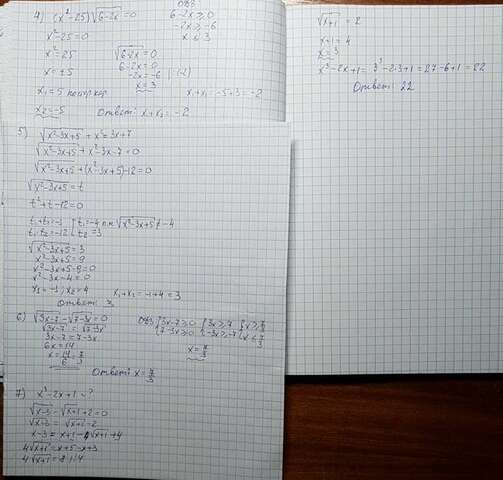 4) (x²-25)√6-2x = 0
x²-25=0
x²=25
x=±5
x₁=5 посторкор
x₂=-5
√6-2x=0
6-2x=0
-2x=-6 |:(-2)
x=3
ОДЗ
6-2x≥0
-2x≥-6
x≤3
x₁+x₂=-5+3=-2
Ответ: x₁+x₂=-2
5) √x²-3x+5 + x²=3x+7
√x²-3x+5 + x²-3x-7=0
√x²-3x+5 + (x²-3x+5)-12=0
√x²-3x+5=t
t²+t-12=0
t₁+t₂=-1 [t₁=-4 п.к √x²-3x+5≠-4
t₁·t₂=-12 [t₂=3
√x²-3x+5=3
x²-3x+5=9
x²-3x+5-9=0
x²-3x-4=0
x₁=-1; x₂=4
x₁+x₂=-1+4=3
Ответ: 3
6) √3x-7-√7-3x=0
√3x-7=√7-3x
3x-7=7-3x
6x=14
x=14/6=7/3
ОДЗ {3x-7≥0 {3x≥7 {x≥7/3
{7-3x≥0 {-3x≥-7 {x≤7/3
x=7/3
Ответ: x=7/3
7) x³-2x+1-?
√x-3-√x+1+2=0
√x-3=√x+1-2
x-3=x+1-4√x+1+4
4√x+1=x+5-x+3
4√x+1=8 |:4
√x+1=2
x+1=4
x=3
x³-2x+1=3³-2·3+1=27-6+1=22
Ответ: 22